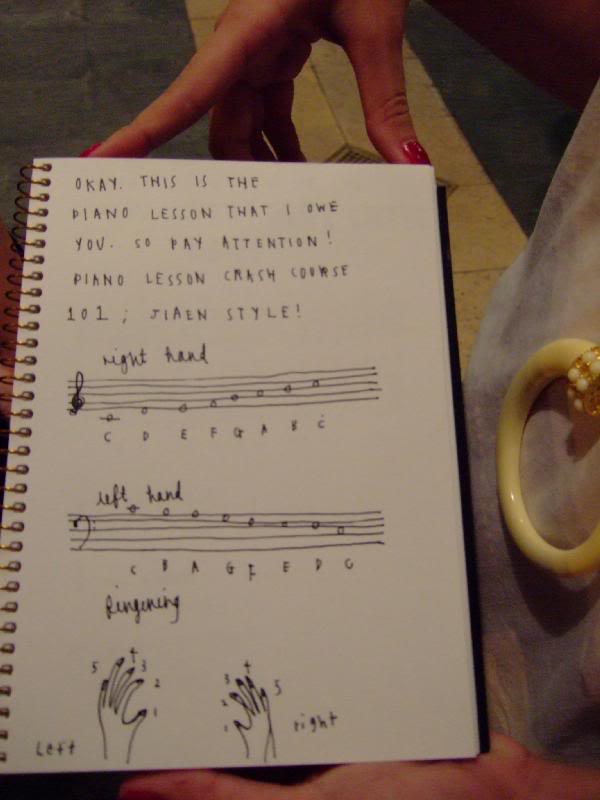 OKAY. THIS IS THE
PIANO LESSON THAT I OWE
YOU. SO PAY ATTENTION!
PIANO LESSON CRASH COURSE
101 ; JIAEN STYLE!
right hand
C D E F G A B C
left hand
C B A G F E D C
fingering
5 4 3 2 1
3 4 5 2 1
Left right